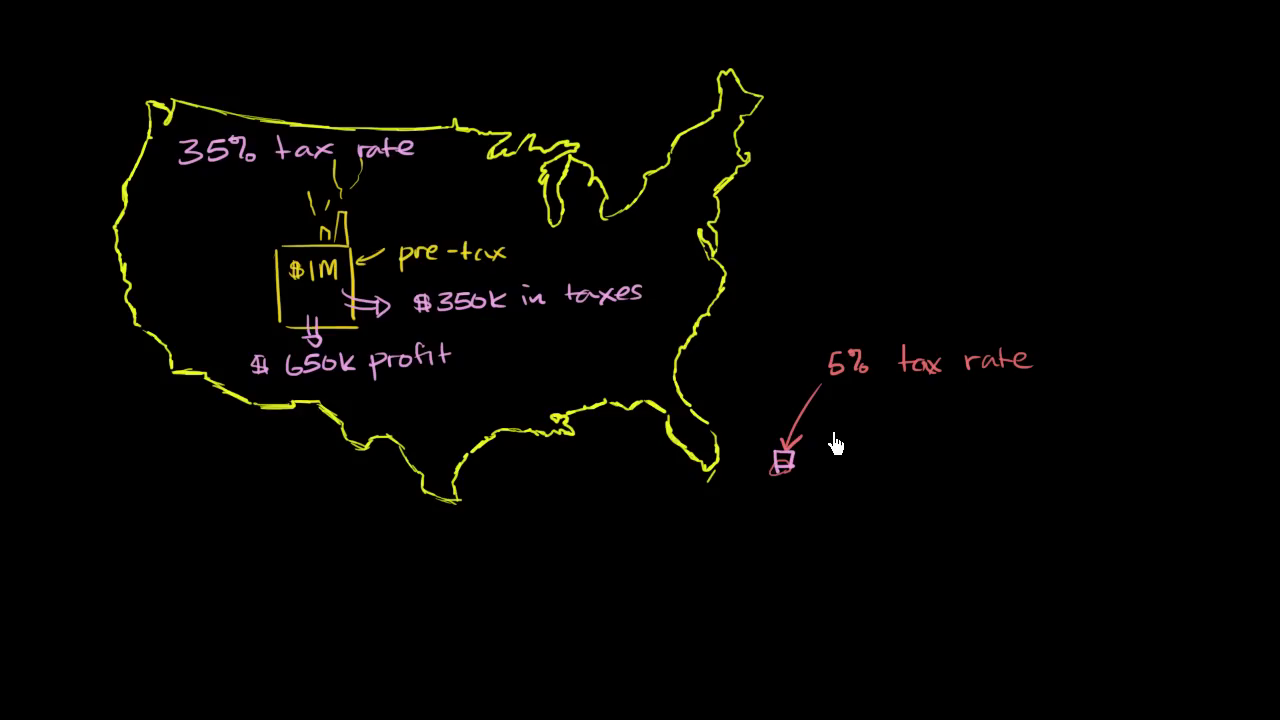 35% tax rate
$1M
pre-tax
$350K in taxes
$ 650K profit
5% tax rate